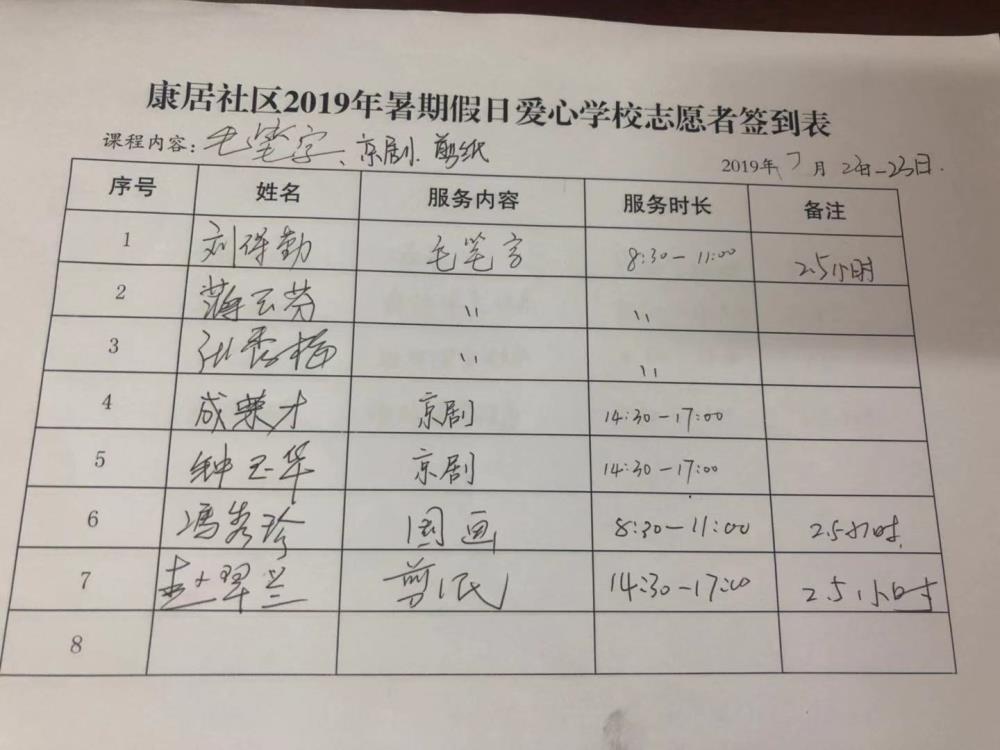 康居社区2019年暑期假日爱心学校志愿者签到表
课程内容：毛笔字、京剧.剪纸
2019年7月22日-23日.
序号 姓名 服务内容 服务时长 备注
1 刘保勤 毛笔字 8:30-11:00 2.5小时
2 蒋云芬 〃 〃
3 张秀梅 〃 〃
4 成荣才 京剧 14:30-17:00
5 钟玉华 京剧 14:30-17:00
6 冯秀珍 国画 8:30-11:00 2.5小时
7 赵翠兰 剪纸 14:30-17:00 2.5小时
8